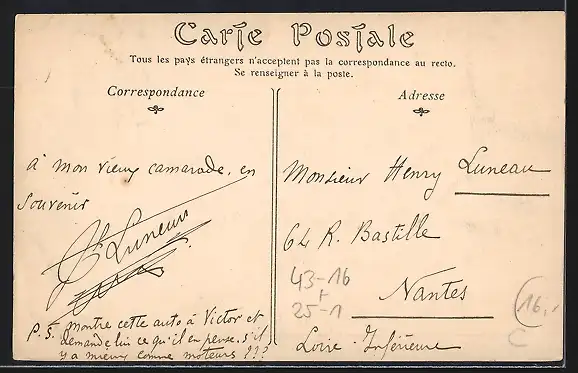 Carte Postale
Tous les pays étrangers n'acceptent pas la correspondance au recto.
Se renseigner à la poste.
Correspondance
à mon vieux camarade, en
souvenir
Luneau
P.S. Montre cette auto à Victor et
demande lui ce qu'il en pense. s'il
y a mieux comme moteurs ???
Adresse
Monsieur Henry Luneau
64 R. Bastille
Nantes
Loire Inférieure
43-16
+
25-1
16,-
C